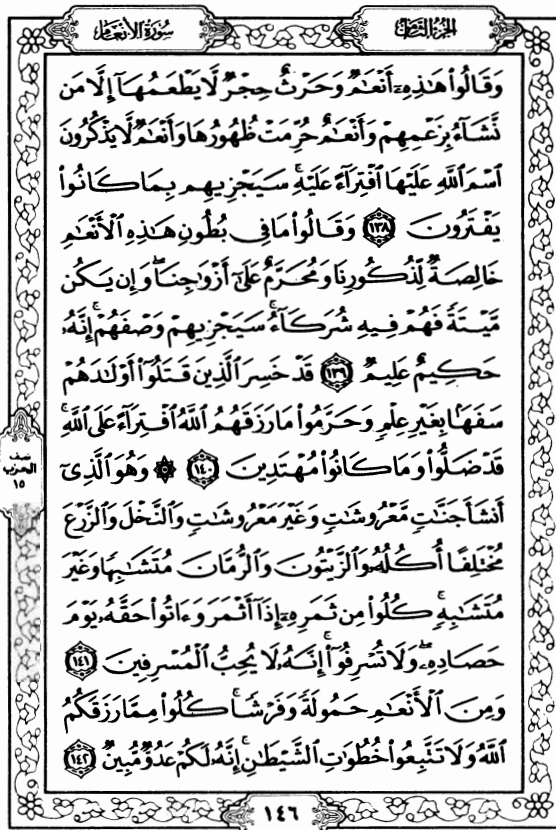 سُورَةُ الأَنْعَام
الجُزْءُ الثَّامِنُ
وَقَالُوا۟ هَـٰذِهِۦٓ أَنْعَـٰمٌ وَحَرْثٌ حِجْرٌ لَّا يَطْعَمُهَآ إِلَّا مَن
نَّشَآءُ بِزَعْمِهِمْ وَأَنْعَـٰمٌ حُرِّمَتْ ظُهُورُهَا وَأَنْعَـٰمٌ لَّا يَذْكُرُونَ
ٱسْمَ ٱللَّهِ عَلَيْهَا ٱفْتِرَآءً عَلَيْهِ ۚ سَيَجْزِيهِم بِمَا كَانُوا۟
يَفْتَرُونَ ﴿١٣٨﴾ وَقَالُوا۟ مَا فِى بُطُونِ هَـٰذِهِ ٱلْأَنْعَـٰمِ
خَالِصَةٌ لِّذُكُورِنَا وَمُحَرَّمٌ عَلَىٰٓ أَزْوَٰجِنَا ۖ وَإِن يَكُن
مَّيْتَةً فَهُمْ فِيهِ شُرَكَآءُ ۚ سَيَجْزِيهِمْ وَصْفَهُمْ ۚ إِنَّهُۥ
حَكِيمٌ عَلِيمٌ ﴿١٣٩﴾ قَدْ خَسِرَ ٱلَّذِينَ قَتَلُوٓا۟ أَوْلَـٰدَهُمْ
سَفَهًۢا بِغَيْرِ عِلْمٍ وَحَرَّمُوا۟ مَا رَزَقَهُمُ ٱللَّهُ ٱفْتِرَآءً عَلَى ٱللَّهِ ۚ
قَدْ ضَلُّوا۟ وَمَا كَانُوا۟ مُهْتَدِينَ ﴿١٤٠﴾ ۞ وَهُوَ ٱلَّذِىٓ
أَنشَأَ جَنَّـٰتٍ مَّعْرُوشَـٰتٍ وَغَيْرَ مَعْرُوشَـٰتٍ وَٱلنَّخْلَ وَٱلزَّرْعَ
مُخْتَلِفًا أُكُلُهُۥ وَٱلزَّيْتُونَ وَٱلرُّمَّانَ مُتَشَـٰبِهًا وَغَيْرَ
مُتَشَـٰبِهٍ ۚ كُلُوا۟ مِن ثَمَرِهِۦٓ إِذَآ أَثْمَرَ وَءَاتُوا۟ حَقَّهُۥ يَوْمَ
حَصَادِهِۦ ۖ وَلَا تُسْرِفُوٓا۟ ۚ إِنَّهُۥ لَا يُحِبُّ ٱلْمُسْرِفِينَ ﴿١٤١﴾
وَمِنَ ٱلْأَنْعَـٰمِ حَمُولَةً وَفَرْشًا ۚ كُلُوا۟ مِمَّا رَزَقَكُمُ
ٱللَّهُ وَلَا تَتَّبِعُوا۟ خُطُوَٰتِ ٱلشَّيْطَـٰنِ ۚ إِنَّهُۥ لَكُمْ عَدُوٌّ مُّبِينٌ ﴿١٤٢﴾
نصف
الحزب
١٥
١٤٦